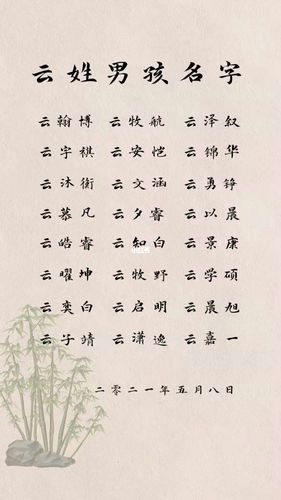 云姓男孩名字
云翰博 云牧航 云泽叙
云宇祺 云安恺 云锦华
云沐衡 云文涵 云勇铮
云慕凡 云夕睿 云以晨
云皓睿 云知白 云景康
云曜坤 云牧野 云学硕
云奕白 云启明 云晨旭
云子靖 云潇逸 云嘉一
二零二一年五月八日